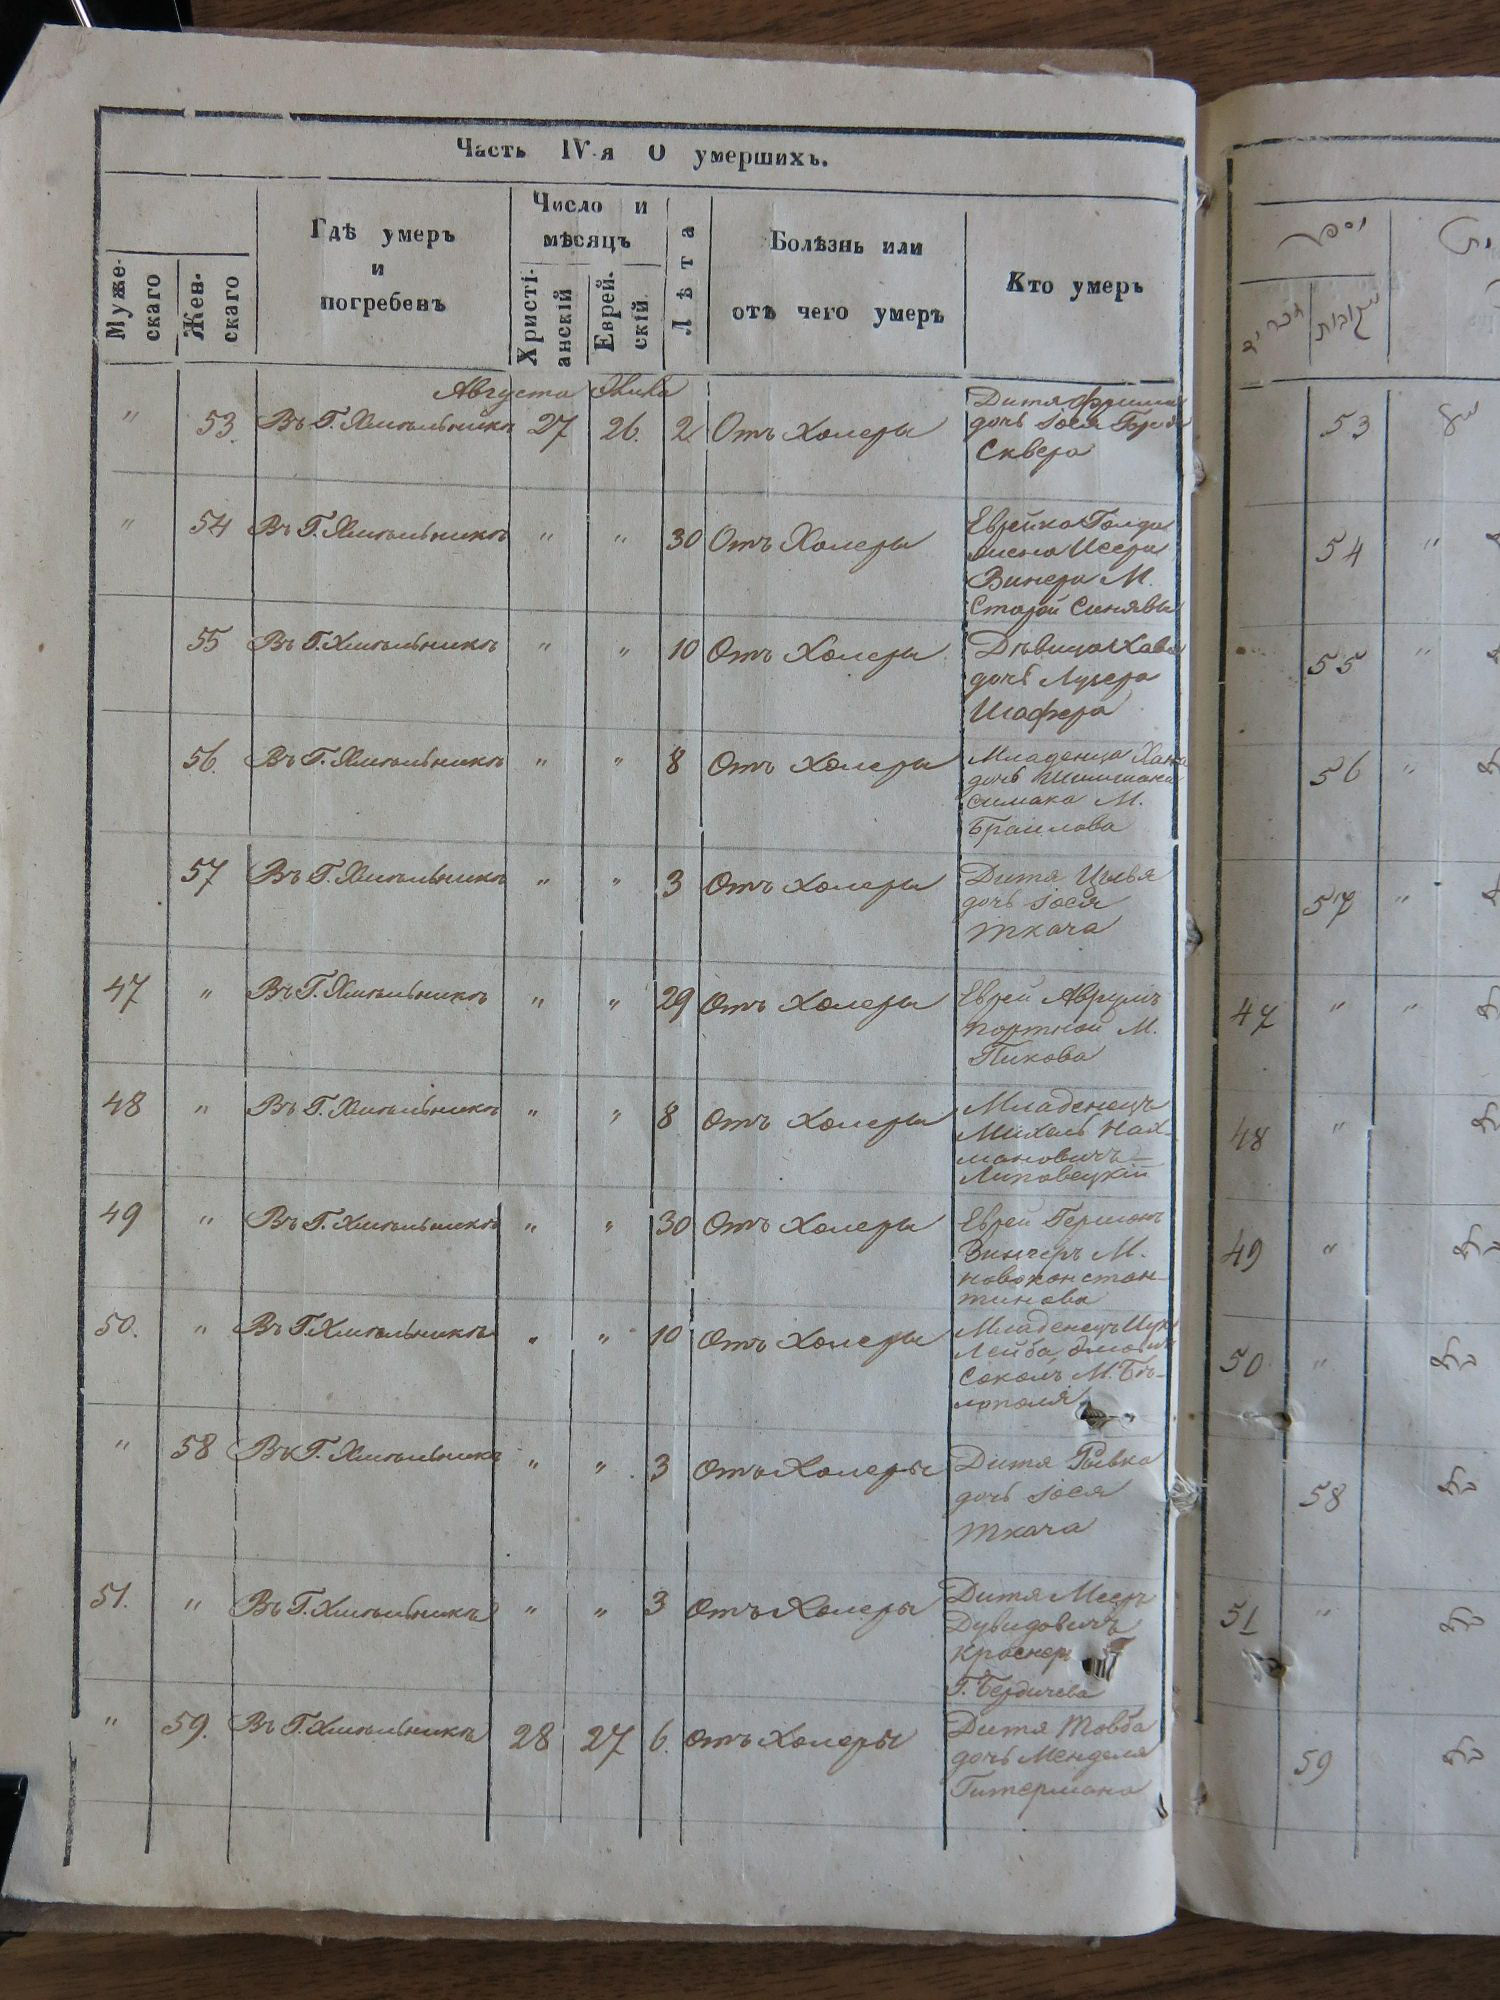 Часть IV-я О умершихъ.
Муже-
скаго
Жен-
скаго
Гдѣ умеръ
и
погребенъ
Число и
мѣсяцъ
Христі-
анскій
Еврей-
скій
Лѣта
Болѣзнь или
отъ чего умеръ
Кто умеръ
Августа
" 53. Въ Г. Хмѣльникѣ 27 26. 2 Отъ Холеры
Дитя Фрима
дочь Іося
Сквера
" 54 Въ Г. Хмѣльникѣ " " 30 Отъ Холеры
Еврейка Голда
жена Исера
Винера М.
Старой Синявы
55 Въ Г. Хмѣльникѣ " " 10 Отъ Холеры
Дѣвица Хава
дочь Лузера
Шафера
56. Въ Г. Хмѣльникѣ " " 8 Отъ Холеры
Младенца Хана
дочь
симака М.
Браилова
57 Въ Г. Хмѣльникѣ " " 3 Отъ Холеры
Дитя Цывья
дочь Іося
Ткача
47 " Въ Г. Хмѣльникѣ " " 29 Отъ Холеры
Еврей Аврумъ
портной М.
Пикова
48 " Въ Г. Хмѣльникѣ " " 8 Отъ Холеры
Младенецъ
Михель Нах-
мановичъ
Липовецкій
49 " Въ Г. Хмѣльникѣ " " 30 Отъ Холеры
Еврей Гершонъ
Винчеръ М.
Новоконстан-
тинова
50. " Въ Г. Хмѣльникѣ " " 10 Отъ Холеры
Младенецъ
Лейба
Соколъ М. Бѣ-
лополя
" 58 Въ Г. Хмѣльникѣ " " 3 Отъ Холеры
Дитя Рывка
дочь Іося
Ткача
51. " Въ Г. Хмѣльникѣ " " 3 Отъ Холеры
Дитя Мееръ
Дувидовичъ
Краснер
Г. Бердичева
" 59. Въ Г. Хмѣльникѣ 28 27 6. Отъ Холеры
Дитя Товба
дочь Менделя
Гитермана
53
54 "
55 "
56 "
57 "
47 " "
48 "
49 "
50 "
58
51 "
59